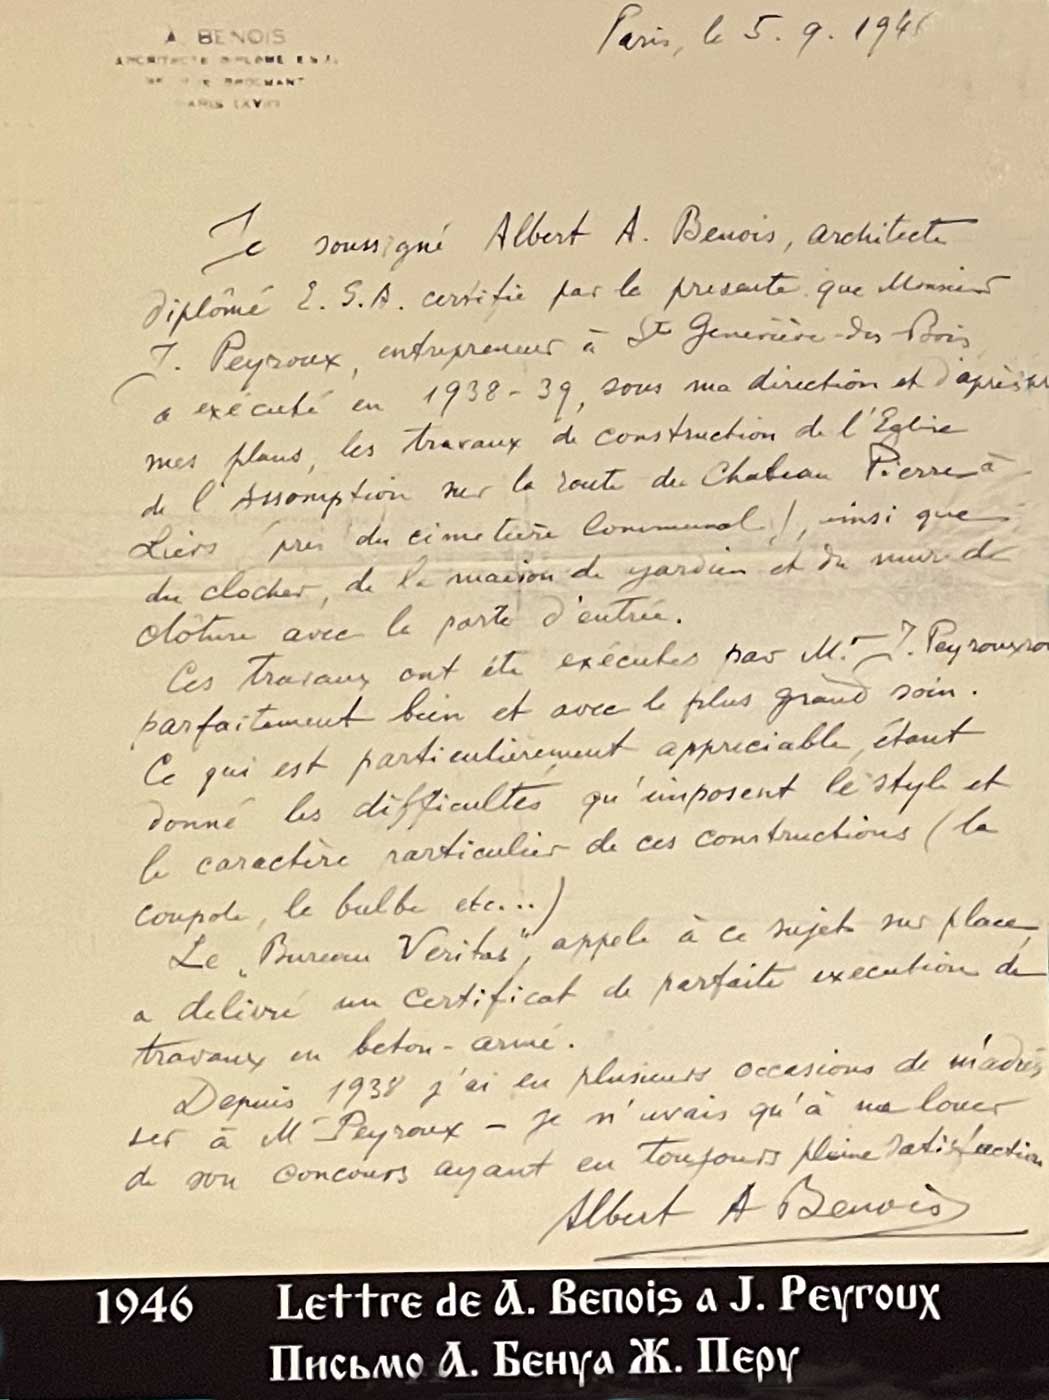 A. BENOIS
ARCHITECTE DIPLÔMÉ E.S.A.
RUE BROCHANT
PARIS (XVII)
Paris, le 5. 9. 1946
Je soussigné Albert A. Benois, architecte
diplômé E.S.A. certifie par la presente que Monsieur
J. Peyroux, entrepreneur à Ste Geneviève-des-Bois
a exécuté en 1938-39, sous ma direction et d'après
mes plans, les travaux de construction de l'Eglise
de l'Assomption sur la route du Chateau Pierre à
Liers (près du cimetière Communal), ainsi que
du clocher, de la maison de gardien et du mur de
clôture avec la porte d'entrée.
Ces travaux ont été exécutés par Mr J. Peyroux
parfaitement bien et avec le plus grand soin.
Ce qui est particulièrement appreciable, étant
donné les difficultés qu'imposent le style et
le caractère particulier de ces constructions (la
coupole, le bulbe etc...)
Le „Bureau Veritas", appelé à ce sujet sur place,
a delivré un certificat de parfaite execution de
travaux en beton-armé.
Depuis 1938 j'ai eu plusieurs occasions de m'adres
ser à Mr Peyroux – je n'avais qu'à me louer
de son concours ayant eu toujours pleine satisfaction
Albert A Benois
1946 Lettre de A. Benois a J. Peyroux
Письмо А. Бенуа Ж. Перу